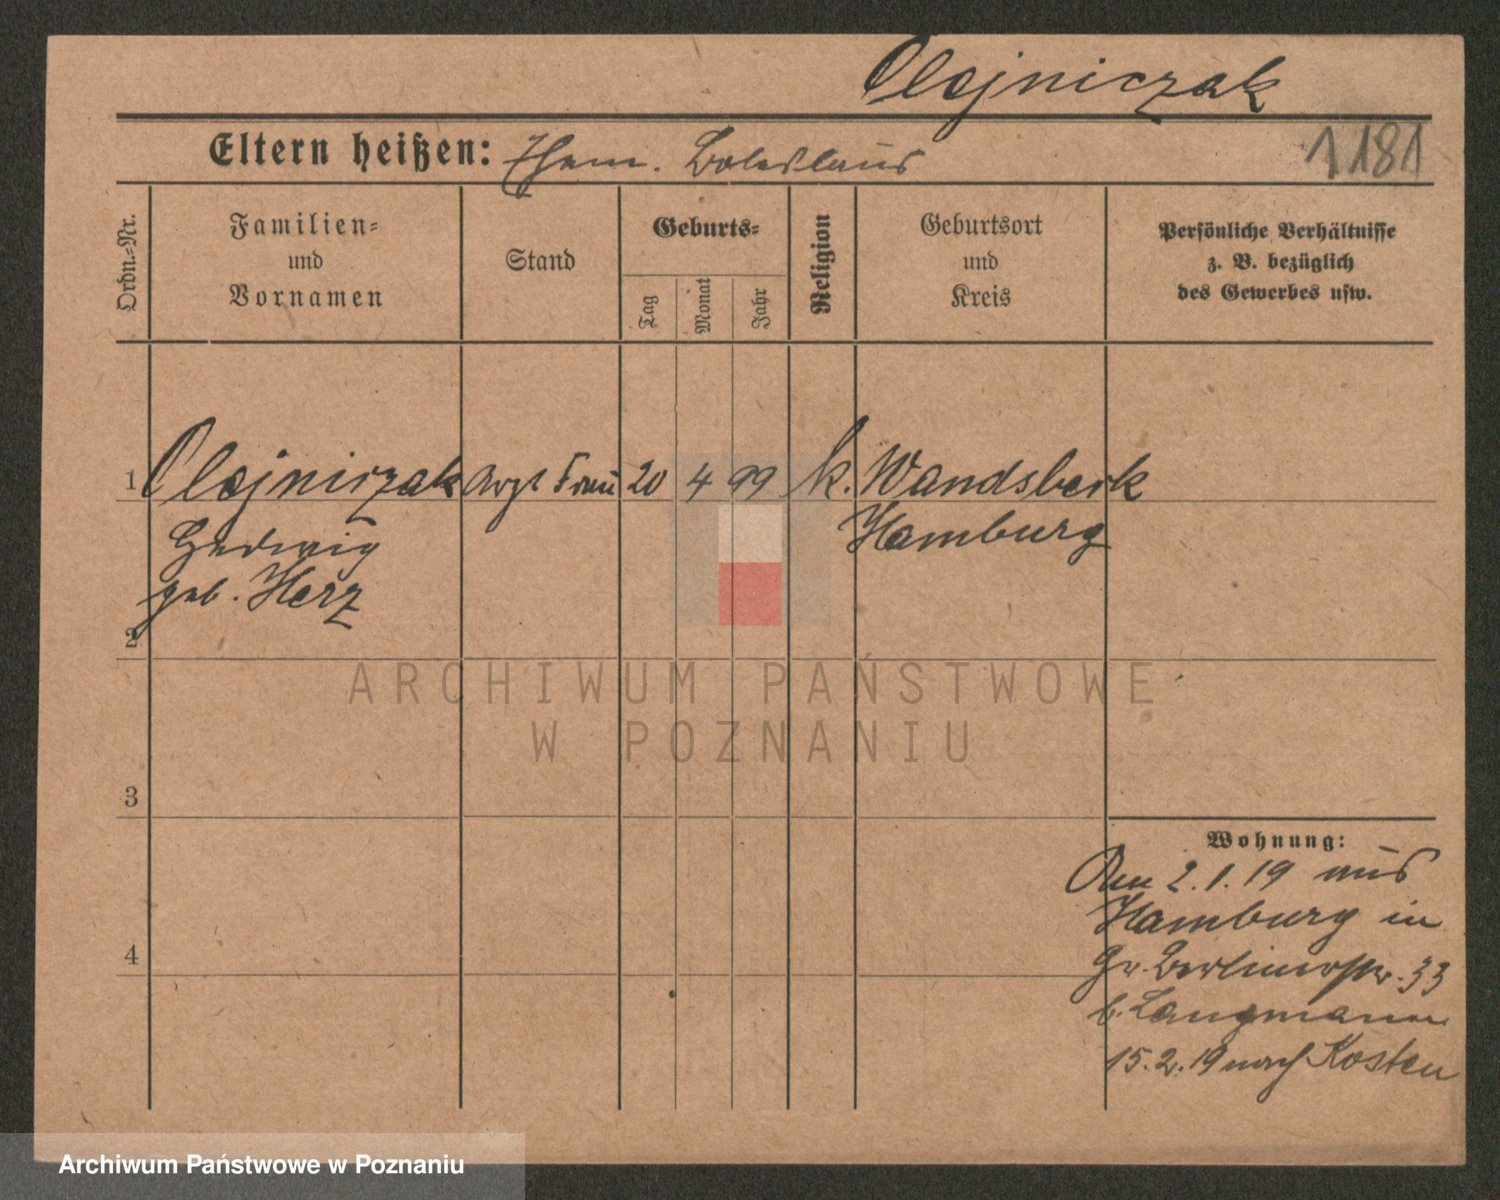 Olejniczak
Eltern heißen: Ehem. Boleslaus
1181
Ordn.-Nr.
Familien-
und
Vornamen
Stand
Geburts-
Tag
Monat
Jahr
Religion
Geburtsort
und
Kreis
Persönliche Verhältnisse
z. B. bezüglich
des Gewerbes usw.
1 Olejniczak Arzt Frau 20 4 99 k. Wandsbek
Hedwig Hamburg
geb. Herz
2
3
4
Wohnung:
Am 2.1.19 aus
Hamburg in
Gr. Berlinerstr. 33
b. Langmann
15.2.19 nach Kosten
ARCHIWUM PAŃSTWOWE
W POZNANIU
Archiwum Państwowe w Poznaniu